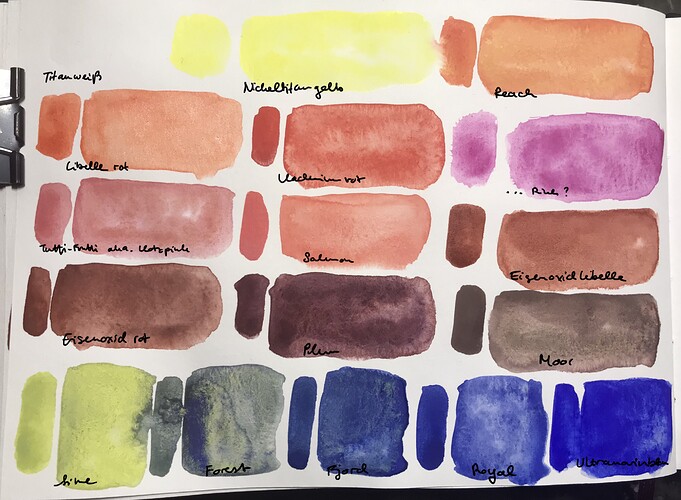 Titanweiß
Nickeltitangelb
Peach
Libelle rot
Kadmium rot
... Pink?
Tutti-Frutti aka. Hotpink
Salmon
Eisenoxid Libelle
Eisenoxid rot
Plum
Moor
Lime
Forest
Fjord
Royal
Ultramarinblau